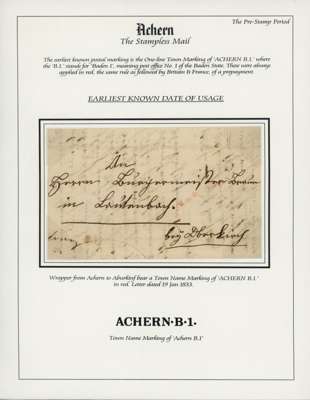 The Pre-Stamp Period
Achern
The Stampless Mail
The earliest known postal marking is the One-line Town Marking of 'ACHERN B.1.' where
the 'B.1.' stands for 'Baden 1', meaning post office No. 1 of the Baden State. These were always
applied in red, the same rule as followed by Britain & France, if a prepayment.
EARLIEST KNOWN DATE OF USAGE
An
Herrn Bürgermeister Braun
in Lautenbach.
bey Oberkirch
Wrapper from Achern to bear a Town Name Marking of 'ACHERN B.1.'
in red. Letter dated 19 Jan 1833.
ACHERN·B·1·
Town Name Marking of 'Achern B.1'